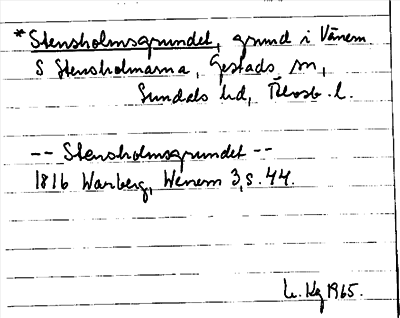 *Stensholmsgrundet, grund i Vänern
S Stensholmarna, Gestads sn,
Sundals hd, Älvsb. l.
-- Stensholmsgrundet --
1816 Warberg, Wenern 3, s. 44.
Kg 1965.